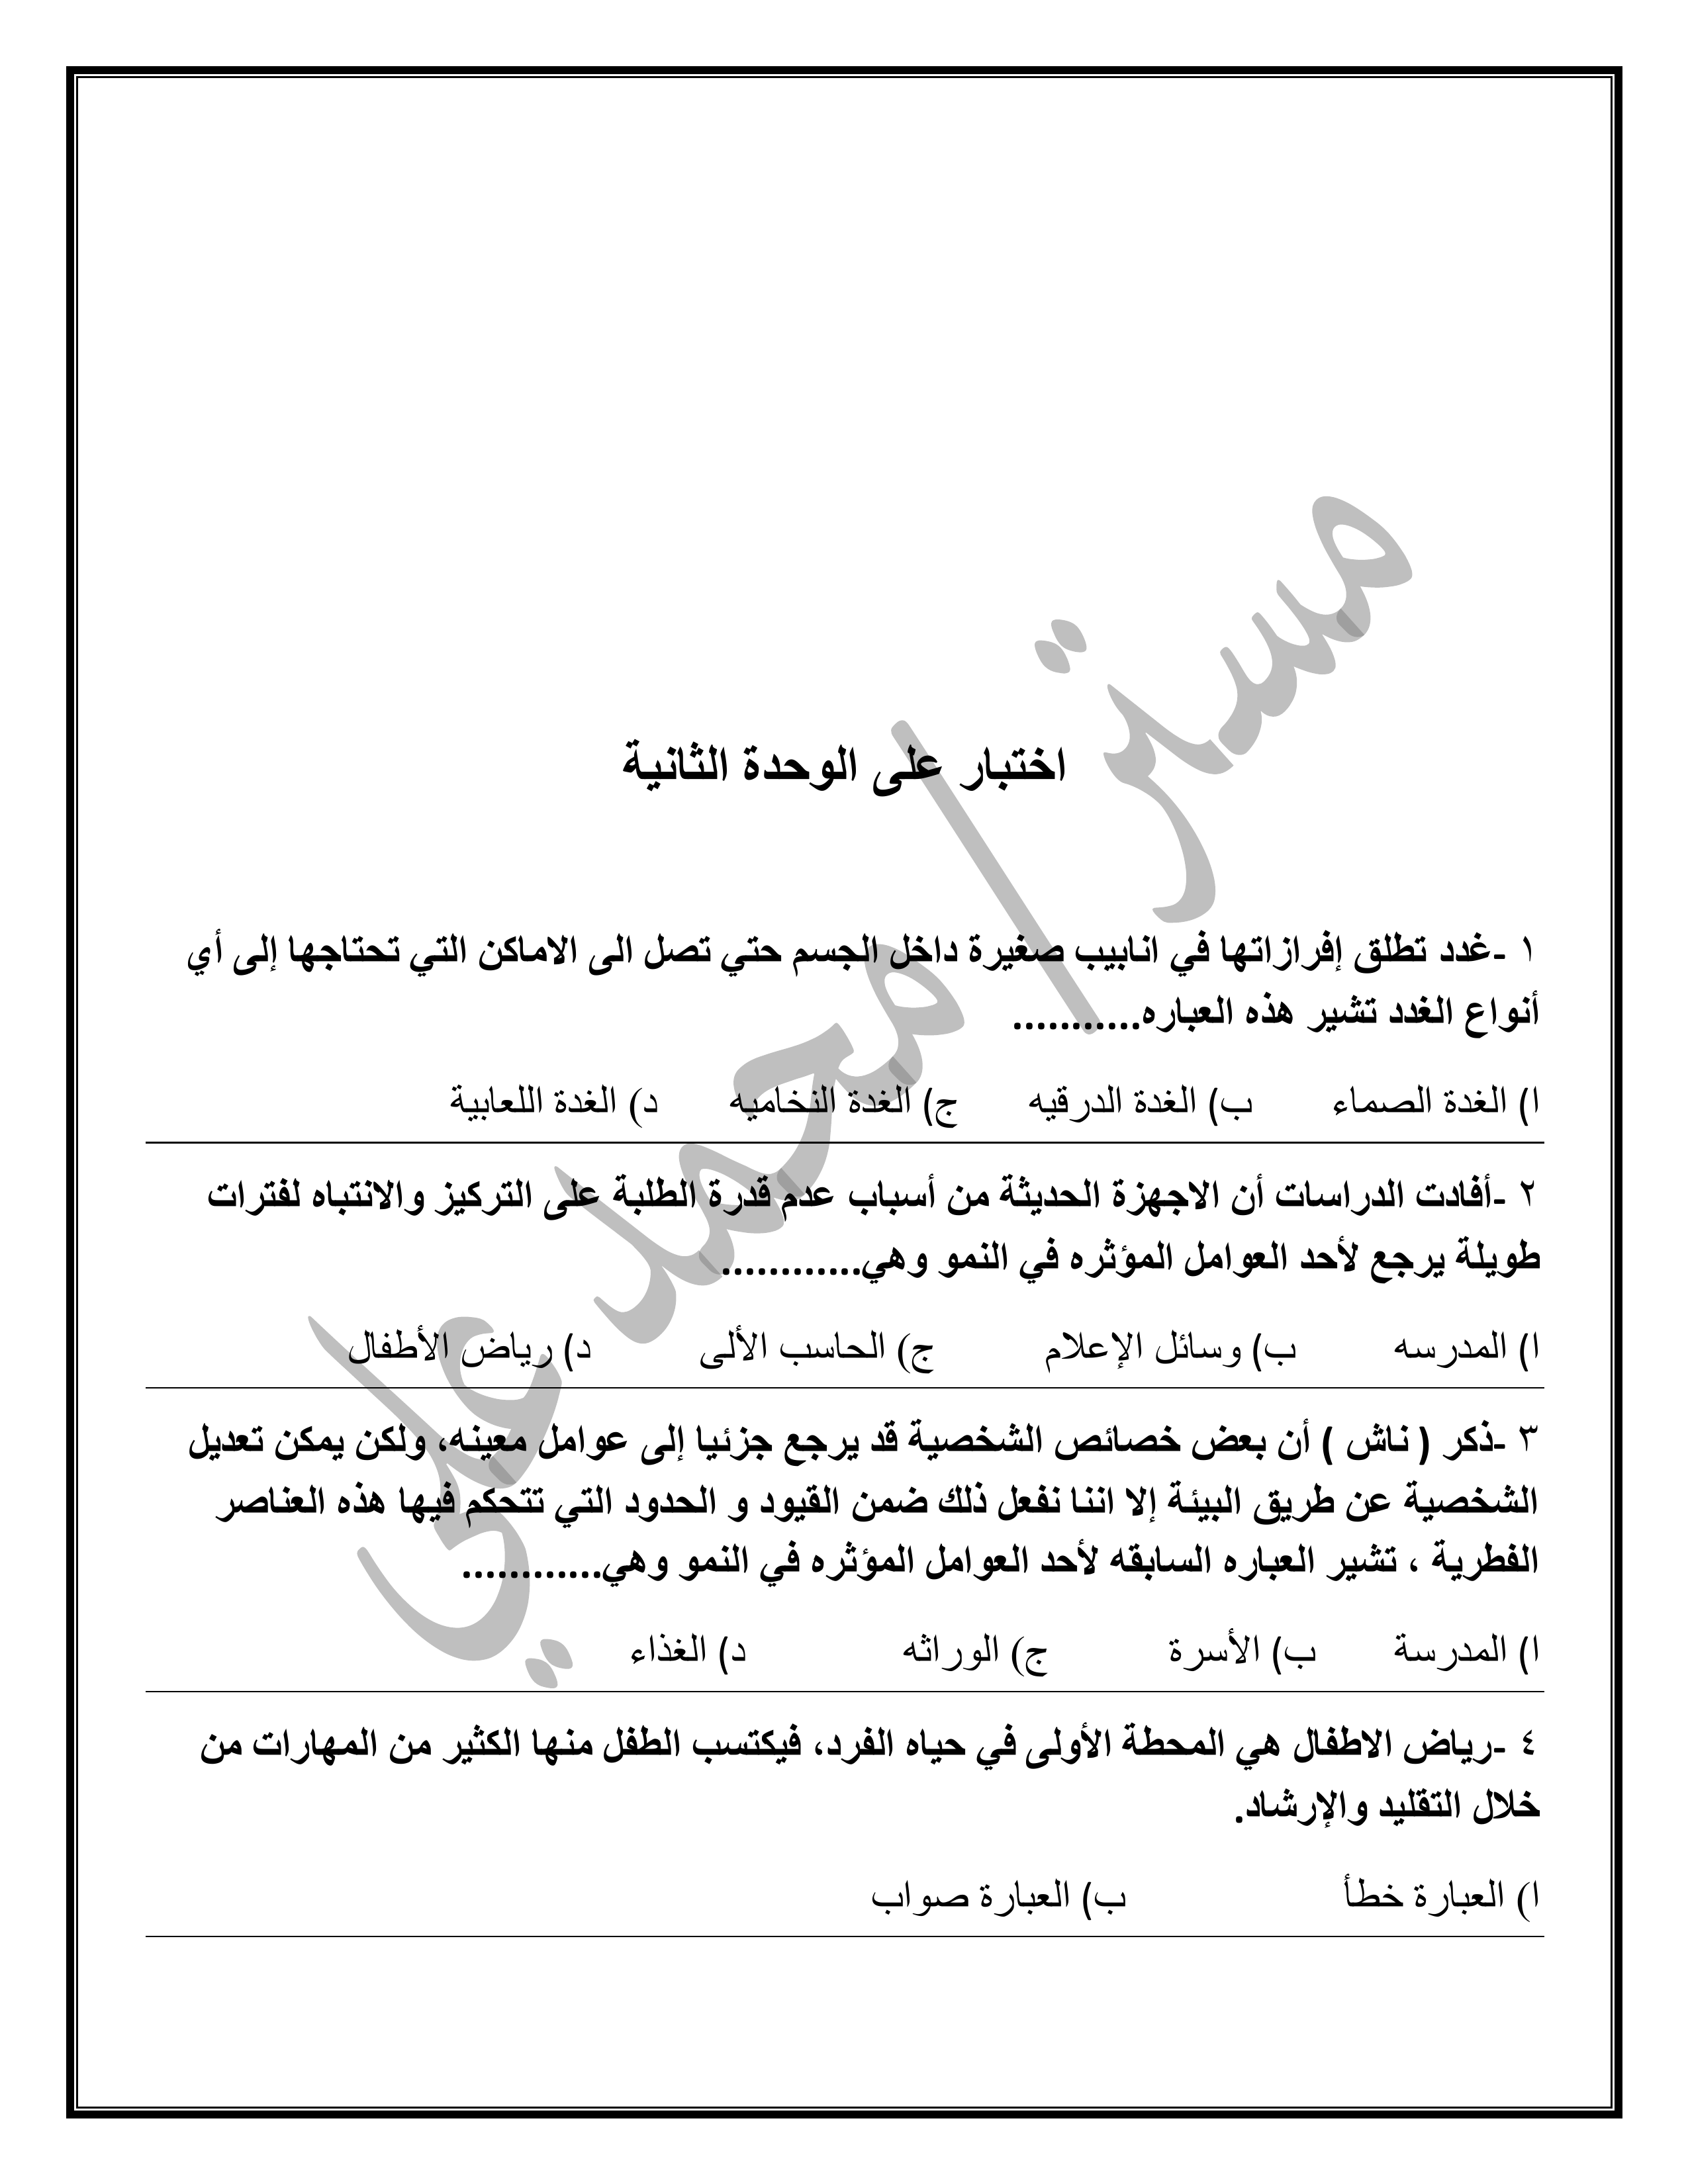 اختبار على الوحدة الثانية
١ -غدد تطلق إفرازاتها في انابيب صغيرة داخل الجسم حتي تصل الى الاماكن التي تحتاجها إلى أي
أنواع الغدد تشير هذه العباره...........
ا) الغدة الصماء ب) الغدة الدرقيه ج) الغدة النخاميه د) الغدة اللعابية
٢ -أفادت الدراسات أن الاجهزة الحديثة من أسباب عدم قدرة الطلبة على التركيز والانتباه لفترات
طويلة يرجع لأحد العوامل المؤثره في النمو وهي............
ا) المدرسه ب) وسائل الإعلام ج) الحاسب الألى د) رياض الأطفال
٣ -ذكر ( ناش ) أن بعض خصائص الشخصية قد يرجع جزئيا إلى عوامل معينه، ولكن يمكن تعديل
الشخصية عن طريق البيئة إلا اننا نفعل ذلك ضمن القيود و الحدود التي تتحكم فيها هذه العناصر
الفطرية ، تشير العباره السابقه لأحد العوامل المؤثره في النمو وهي............
ا) المدرسة ب) الأسرة ج) الوراثه د) الغذاء
٤ -رياض الاطفال هي المحطة الأولى في حياه الفرد، فيكتسب الطفل منها الكثير من المهارات من
خلال التقليد والإرشاد.
ا) العبارة خطأ ب) العبارة صواب
مستر/محمد علي